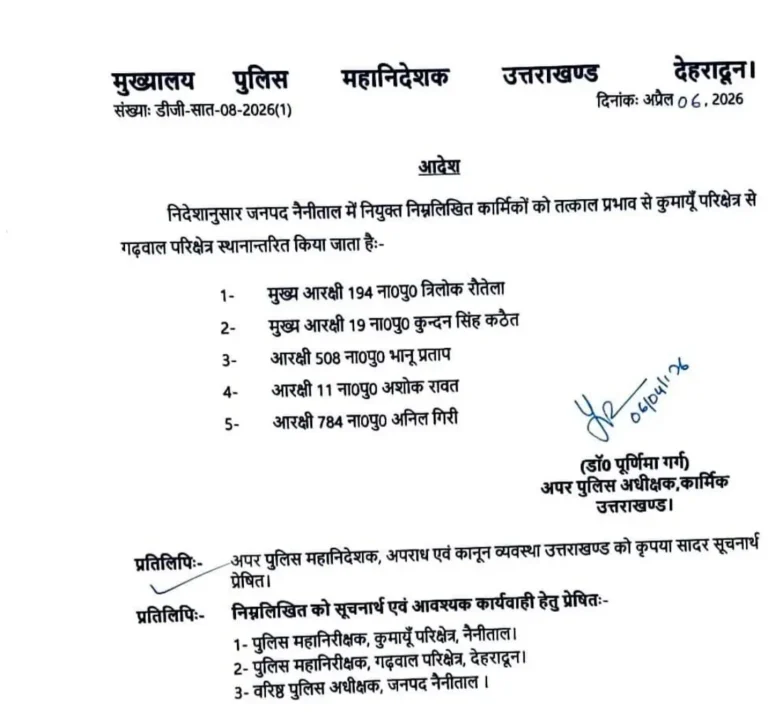 मुख्यालय पुलिस महानिदेशक उत्तराखण्ड देहरादून।
संख्याः डीजी-सात-08-2026(1)
दिनांकः अप्रैल 06, 2026
आदेश
निदेशानुसार जनपद नैनीताल में नियुक्त निम्नलिखित कार्मिकों को तत्काल प्रभाव से कुमायूँ परिक्षेत्र से
गढ़वाल परिक्षेत्र स्थानान्तरित किया जाता हैः-
1- मुख्य आरक्षी 194 ना0पु0 त्रिलोक रौतेला
2- मुख्य आरक्षी 19 ना0पु0 कुन्दन सिंह कठैत
3- आरक्षी 508 ना0पु0 भानू प्रताप
4- आरक्षी 11 ना0पु0 अशोक रावत
5- आरक्षी 784 ना0पु0 अनिल गिरी
06/04/26
(डॉ0 पूर्णिमा गर्ग)
अपर पुलिस अधीक्षक,कार्मिक
उत्तराखण्ड।
प्रतिलिपिः- अपर पुलिस महानिदेशक, अपराध एवं कानून व्यवस्था उत्तराखण्ड को कृपया सादर सूचनार्थ
प्रेषित।
प्रतिलिपिः- निम्नलिखित को सूचनार्थ एवं आवश्यक कार्यवाही हेतु प्रेषितः-
1- पुलिस महानिरीक्षक, कुमायूँ परिक्षेत्र, नैनीताल।
2- पुलिस महानिरीक्षक, गढ़वाल परिक्षेत्र, देहरादून।
3- वरिष्ठ पुलिस अधीक्षक, जनपद नैनीताल ।